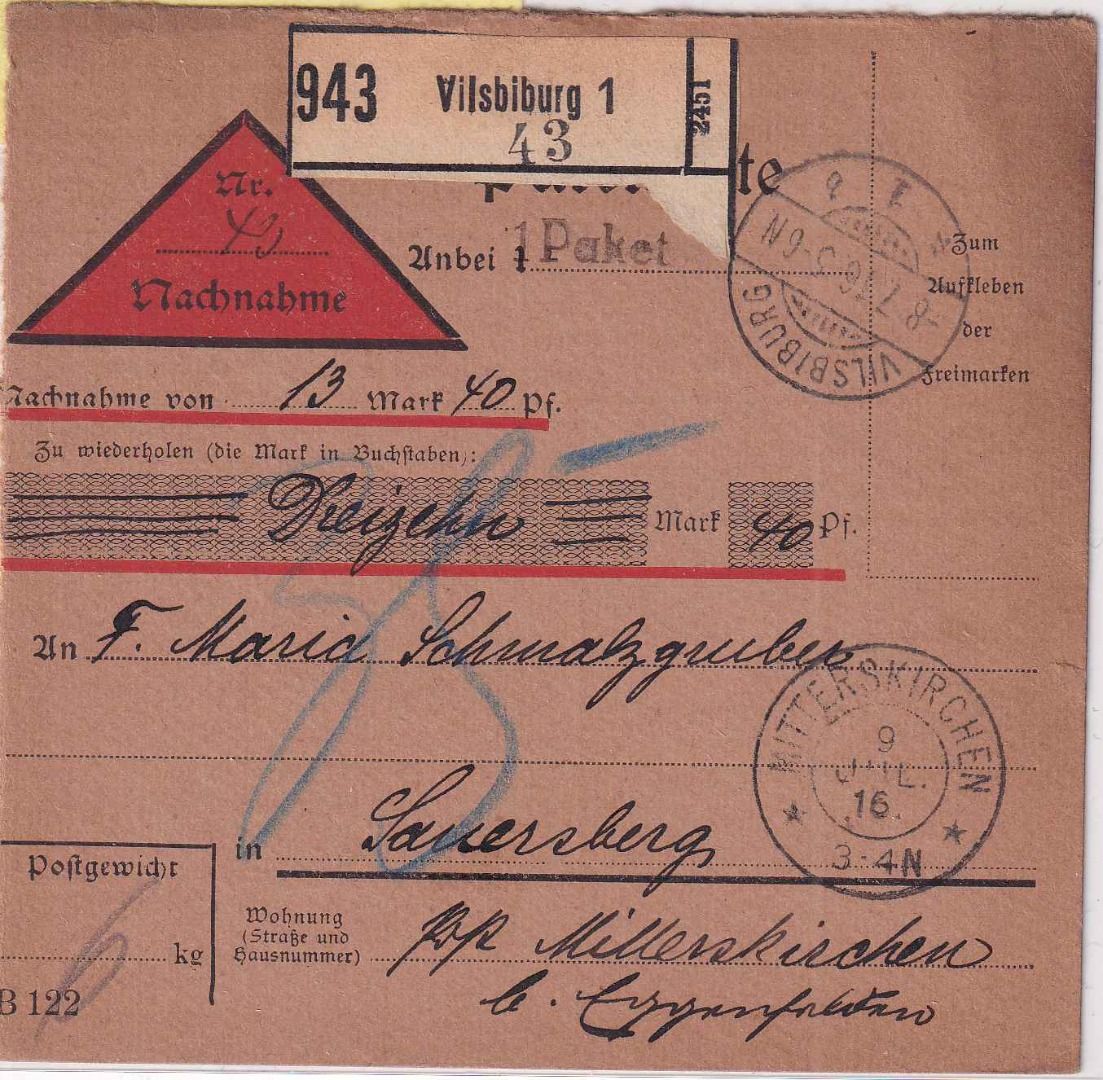 943 Vilsbiburg 1 2451
43
te
Nr.
Nachnahme
Anbei 1 1 Paket
VILSBIBURG
-8.7.16 5-6 N
Zum
Aufkleben
der
Freimarken
Nachnahme von 13 Mark 40 Pf.
Zu wiederholen (die Mark in Buchstaben):
Dreizehn Mark 40 Pf.
An F. Maria Schmalzgruber
MITTERSKIRCHEN
9
JUL.
.16.
3-4N
in Sauersberg
Postgewicht
6 kg
B 122
Wohnung
(Straße und
Hausnummer)
Mitterskirchen
b. Eggenfelden